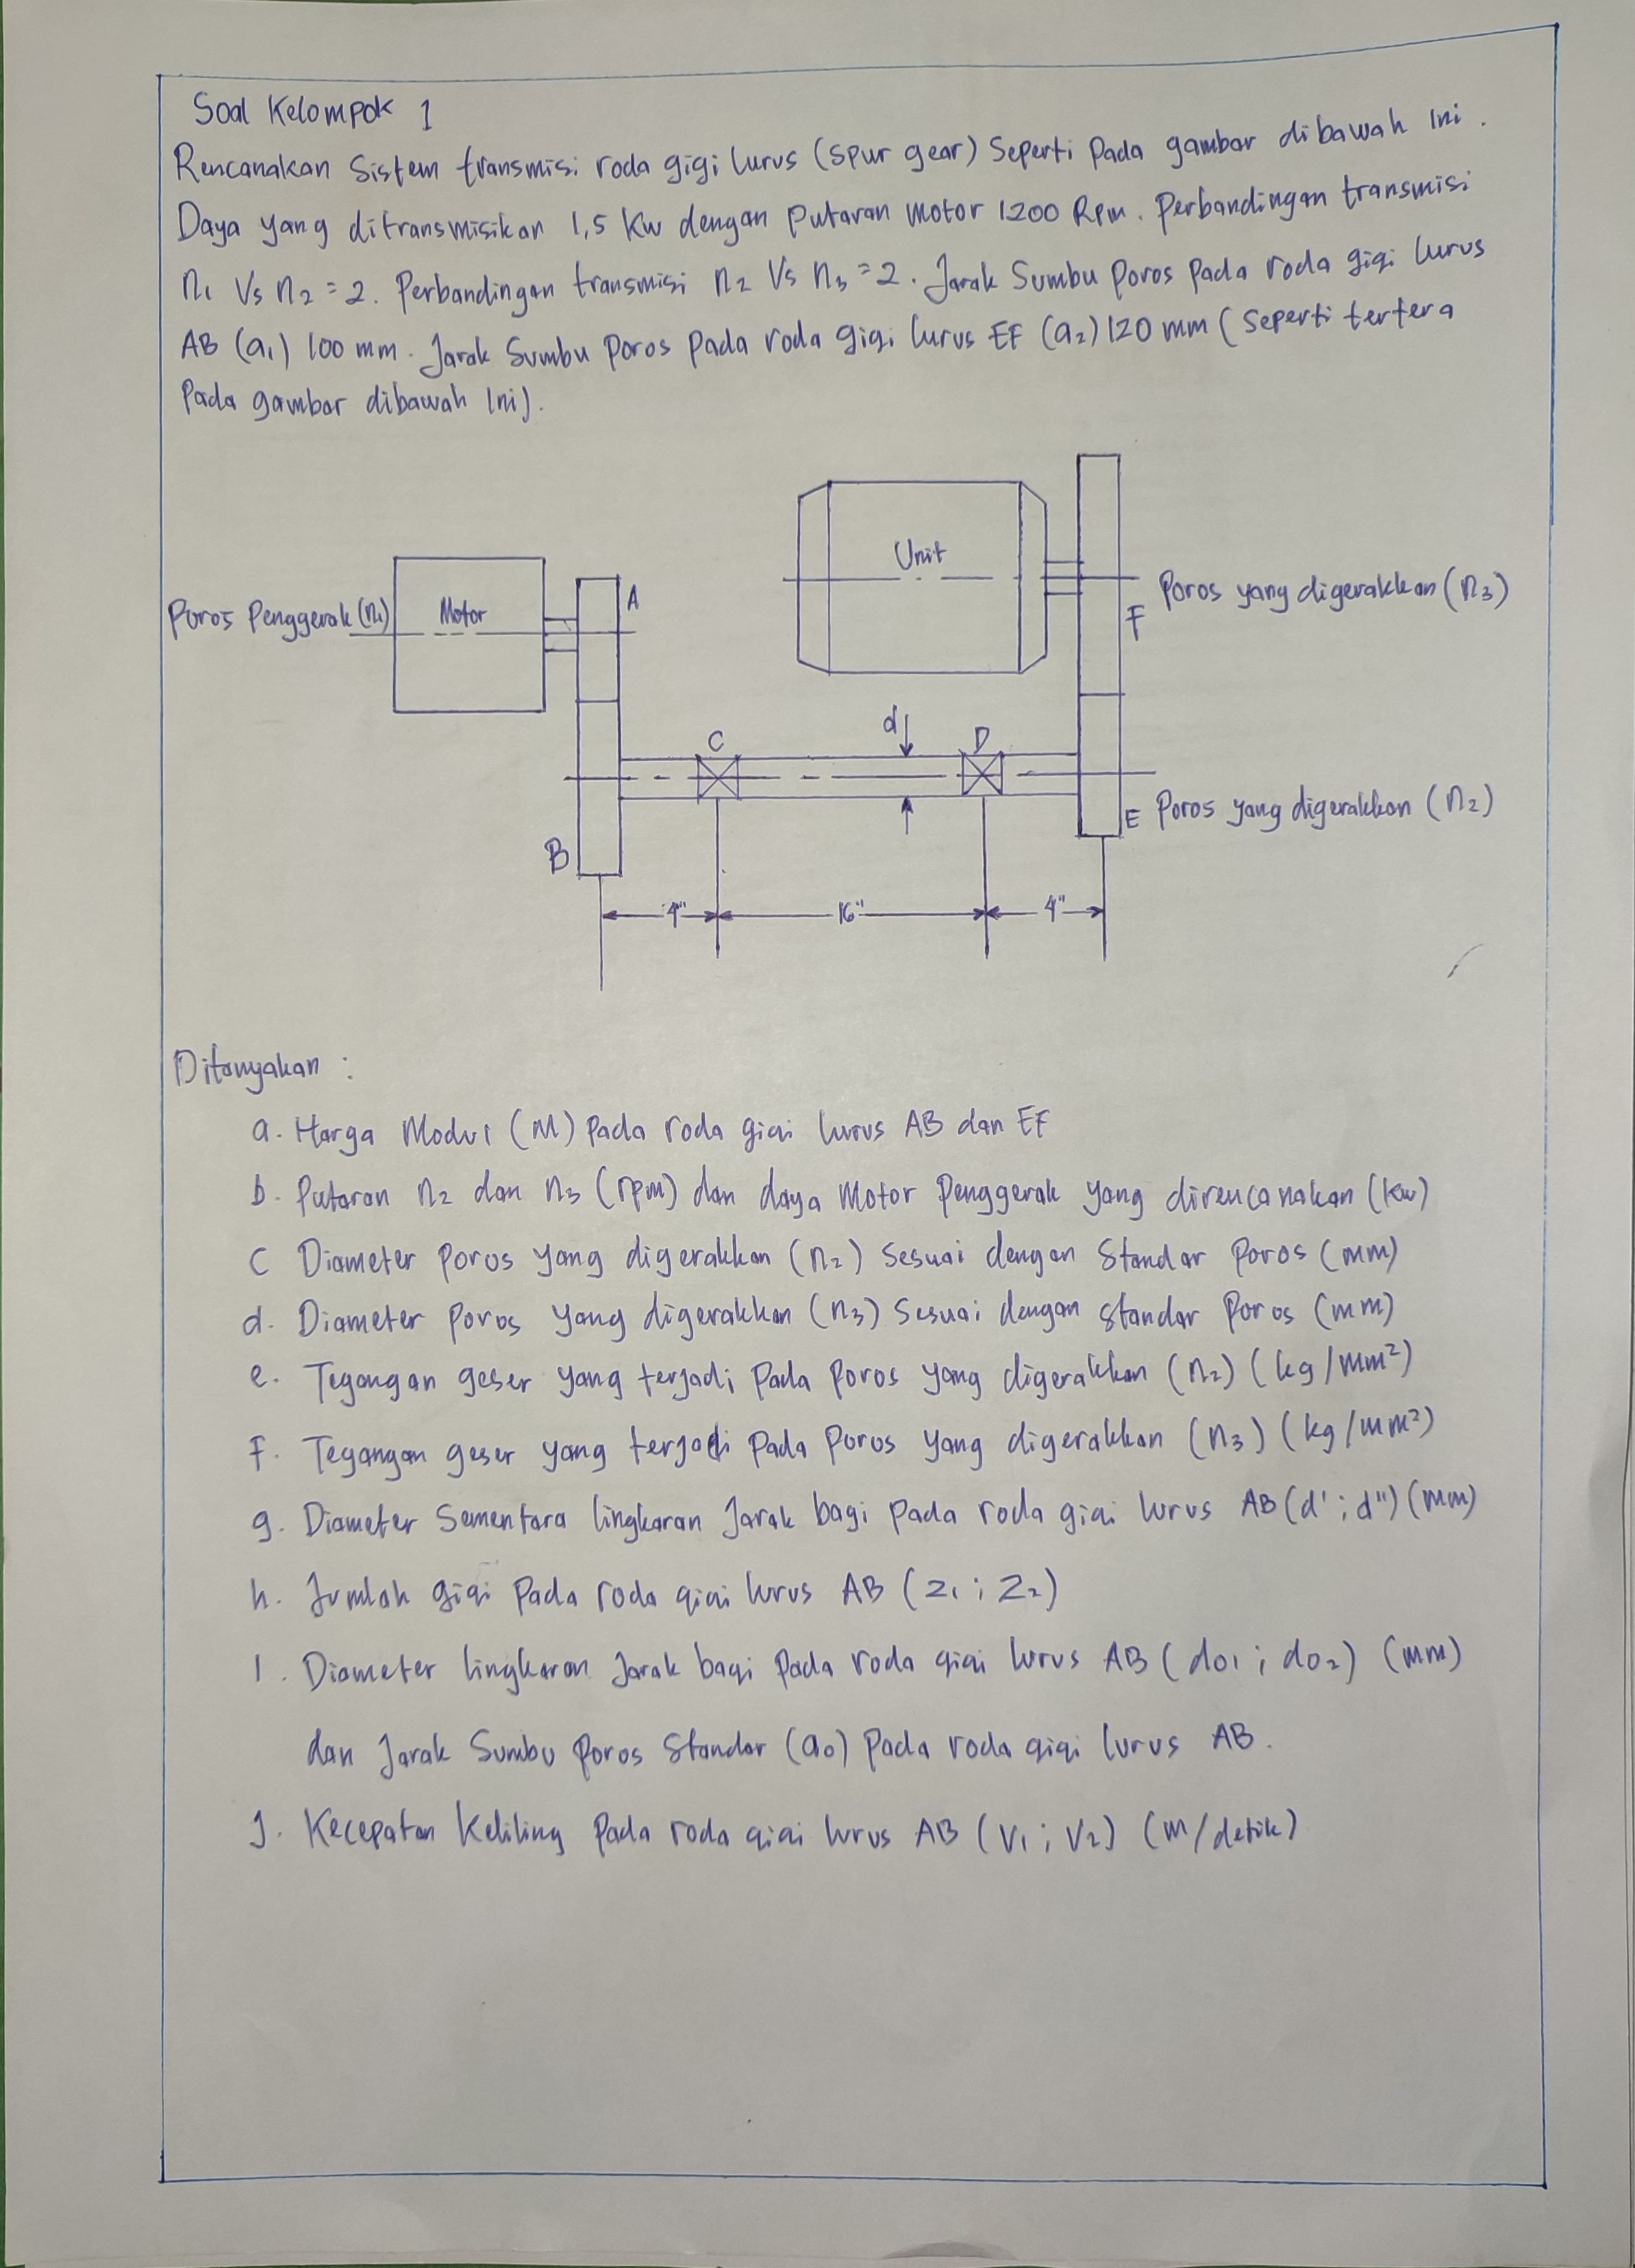 Soal Kelompok 1
Rencanakan Sistem transmisi roda gigi lurus (spur gear) Seperti Pada gambar dibawah Ini.
Daya yang ditransmisikan 1,5 Kw dengan Putaran Motor 1200 Rpm. Perbandingan transmisi
n1 Vs n2 = 2. Perbandingan transmisi n2 Vs n3 = 2. Jarak Sumbu Poros Pada roda gigi lurus
AB (a1) 100 mm. Jarak Sumbu Poros Pada roda gigi lurus EF (a2) 120 mm (Seperti tertera
Pada gambar dibawah Ini).
Unit
Poros Penggerak (n1)
Motor
A
F
Poros yang digerakkan (n3)
C
d
D
B
E
Poros yang digerakkan (n2)
4"
16"
4"
Ditanyakan :
a. Harga Modul (M) Pada roda gigi lurus AB dan EF
b. Putaran n2 dan n3 (rpm) dan daya Motor Penggerak yang direncanakan (Kw)
C Diameter Poros yang digerakkan (n2) Sesuai dengan Standar Poros (mm)
d. Diameter Poros yang digerakkan (n3) Sesuai dengan standar Poros (mm)
e. Tegangan geser yang terjadi Pada Poros yang digerakkan (n2) (kg/mm²)
F. Tegangan geser yang terjadi Pada Poros yang digerakkan (n3) (kg/mm²)
g. Diameter Sementara lingkaran Jarak bagi Pada roda gigi lurus AB (d' ; d") (mm)
h. Jumlah gigi Pada roda gigi lurus AB (z1 ; z2)
I. Diameter lingkaran Jarak bagi Pada roda gigi lurus AB (do1 ; do2) (mm)
dan Jarak Sumbu Poros Standar (ao) Pada roda gigi lurus AB.
J. Kecepatan Keliling Pada roda gigi lurus AB (V1 ; V2) (m/detik)